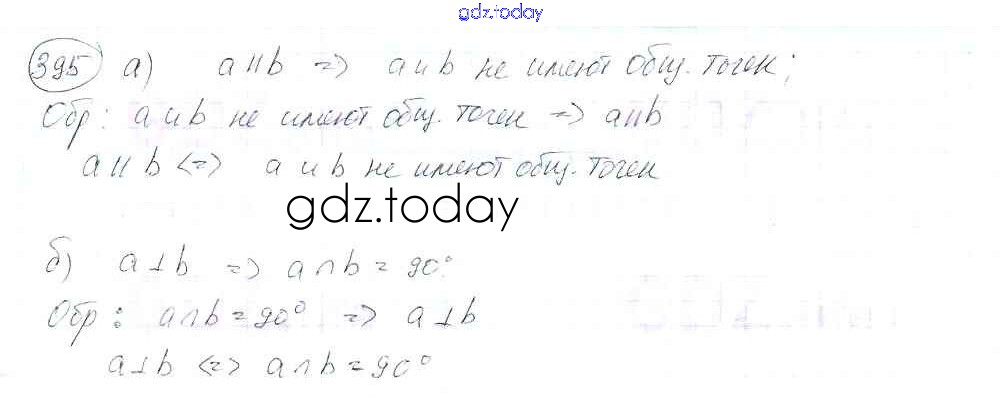 gdz.today
395 а) a || b => a и b не имеют общ. точек;
Обр: a и b не имеют общ. точек => a || b
a || b <=> a и b не имеют общ. точек
gdz.today
б) a ⊥ b => a ∩ b = 90°
Обр: a ∩ b = 90° => a ⊥ b
a ⊥ b <=> a ∩ b = 90°